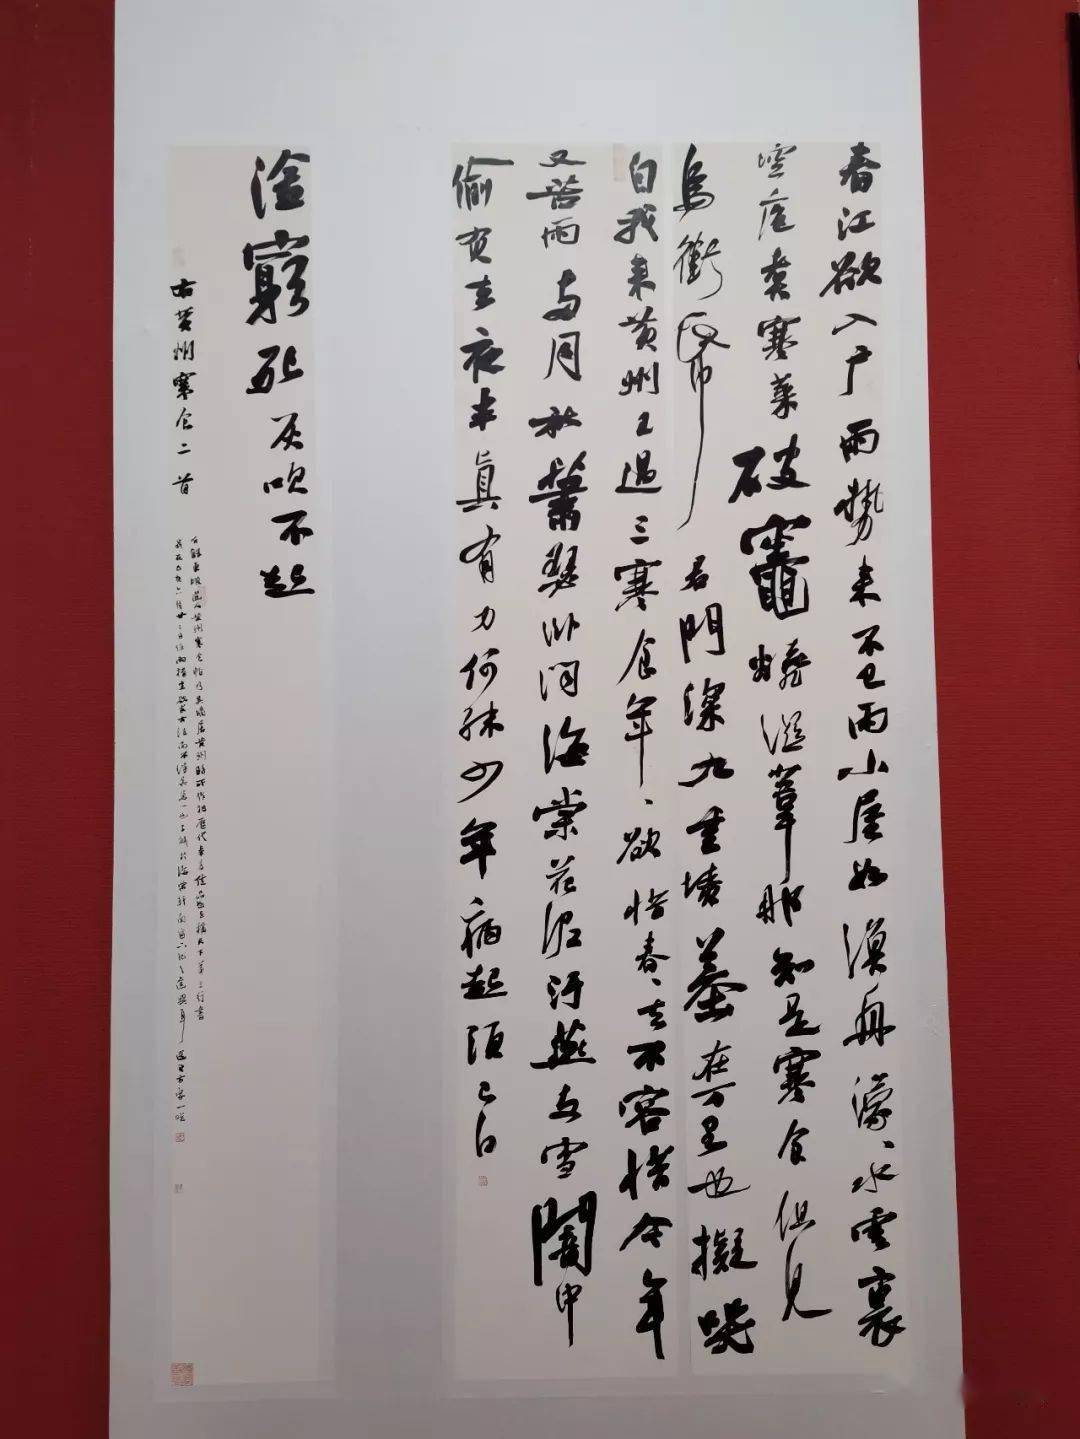 春江欲入户雨势来不已雨小屋如渔舟濛、水云裏
空庖煮寒菜破竈烧湿苇那知是寒食但见
乌衔帋君門深九重坟墓在万里也拟哭
自我来黄州已过三寒食年、欲惜春、去不容惜今年
又苦雨两月秋萧瑟卧闻海棠花泥污燕支雪闇中
偷负去夜半真有力何殊少年病起须已白
塗窮死灰吹不起
右黄州寒食二首